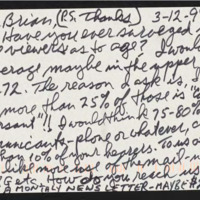 Brian, (P.S. Thanks) 3-12-9
Have you ever surveyed
viewers as to age? I would
erage maybe in the upper
72. The reason I ask is, I
more than 25% of those is "
san"!! I would think 75-80%
unicants-phone or whatever,
an 10% of your keepers. To us
like more of the mail
Gets. How do you reach us
A MONTHLY NEWS LETTER-MAYBE